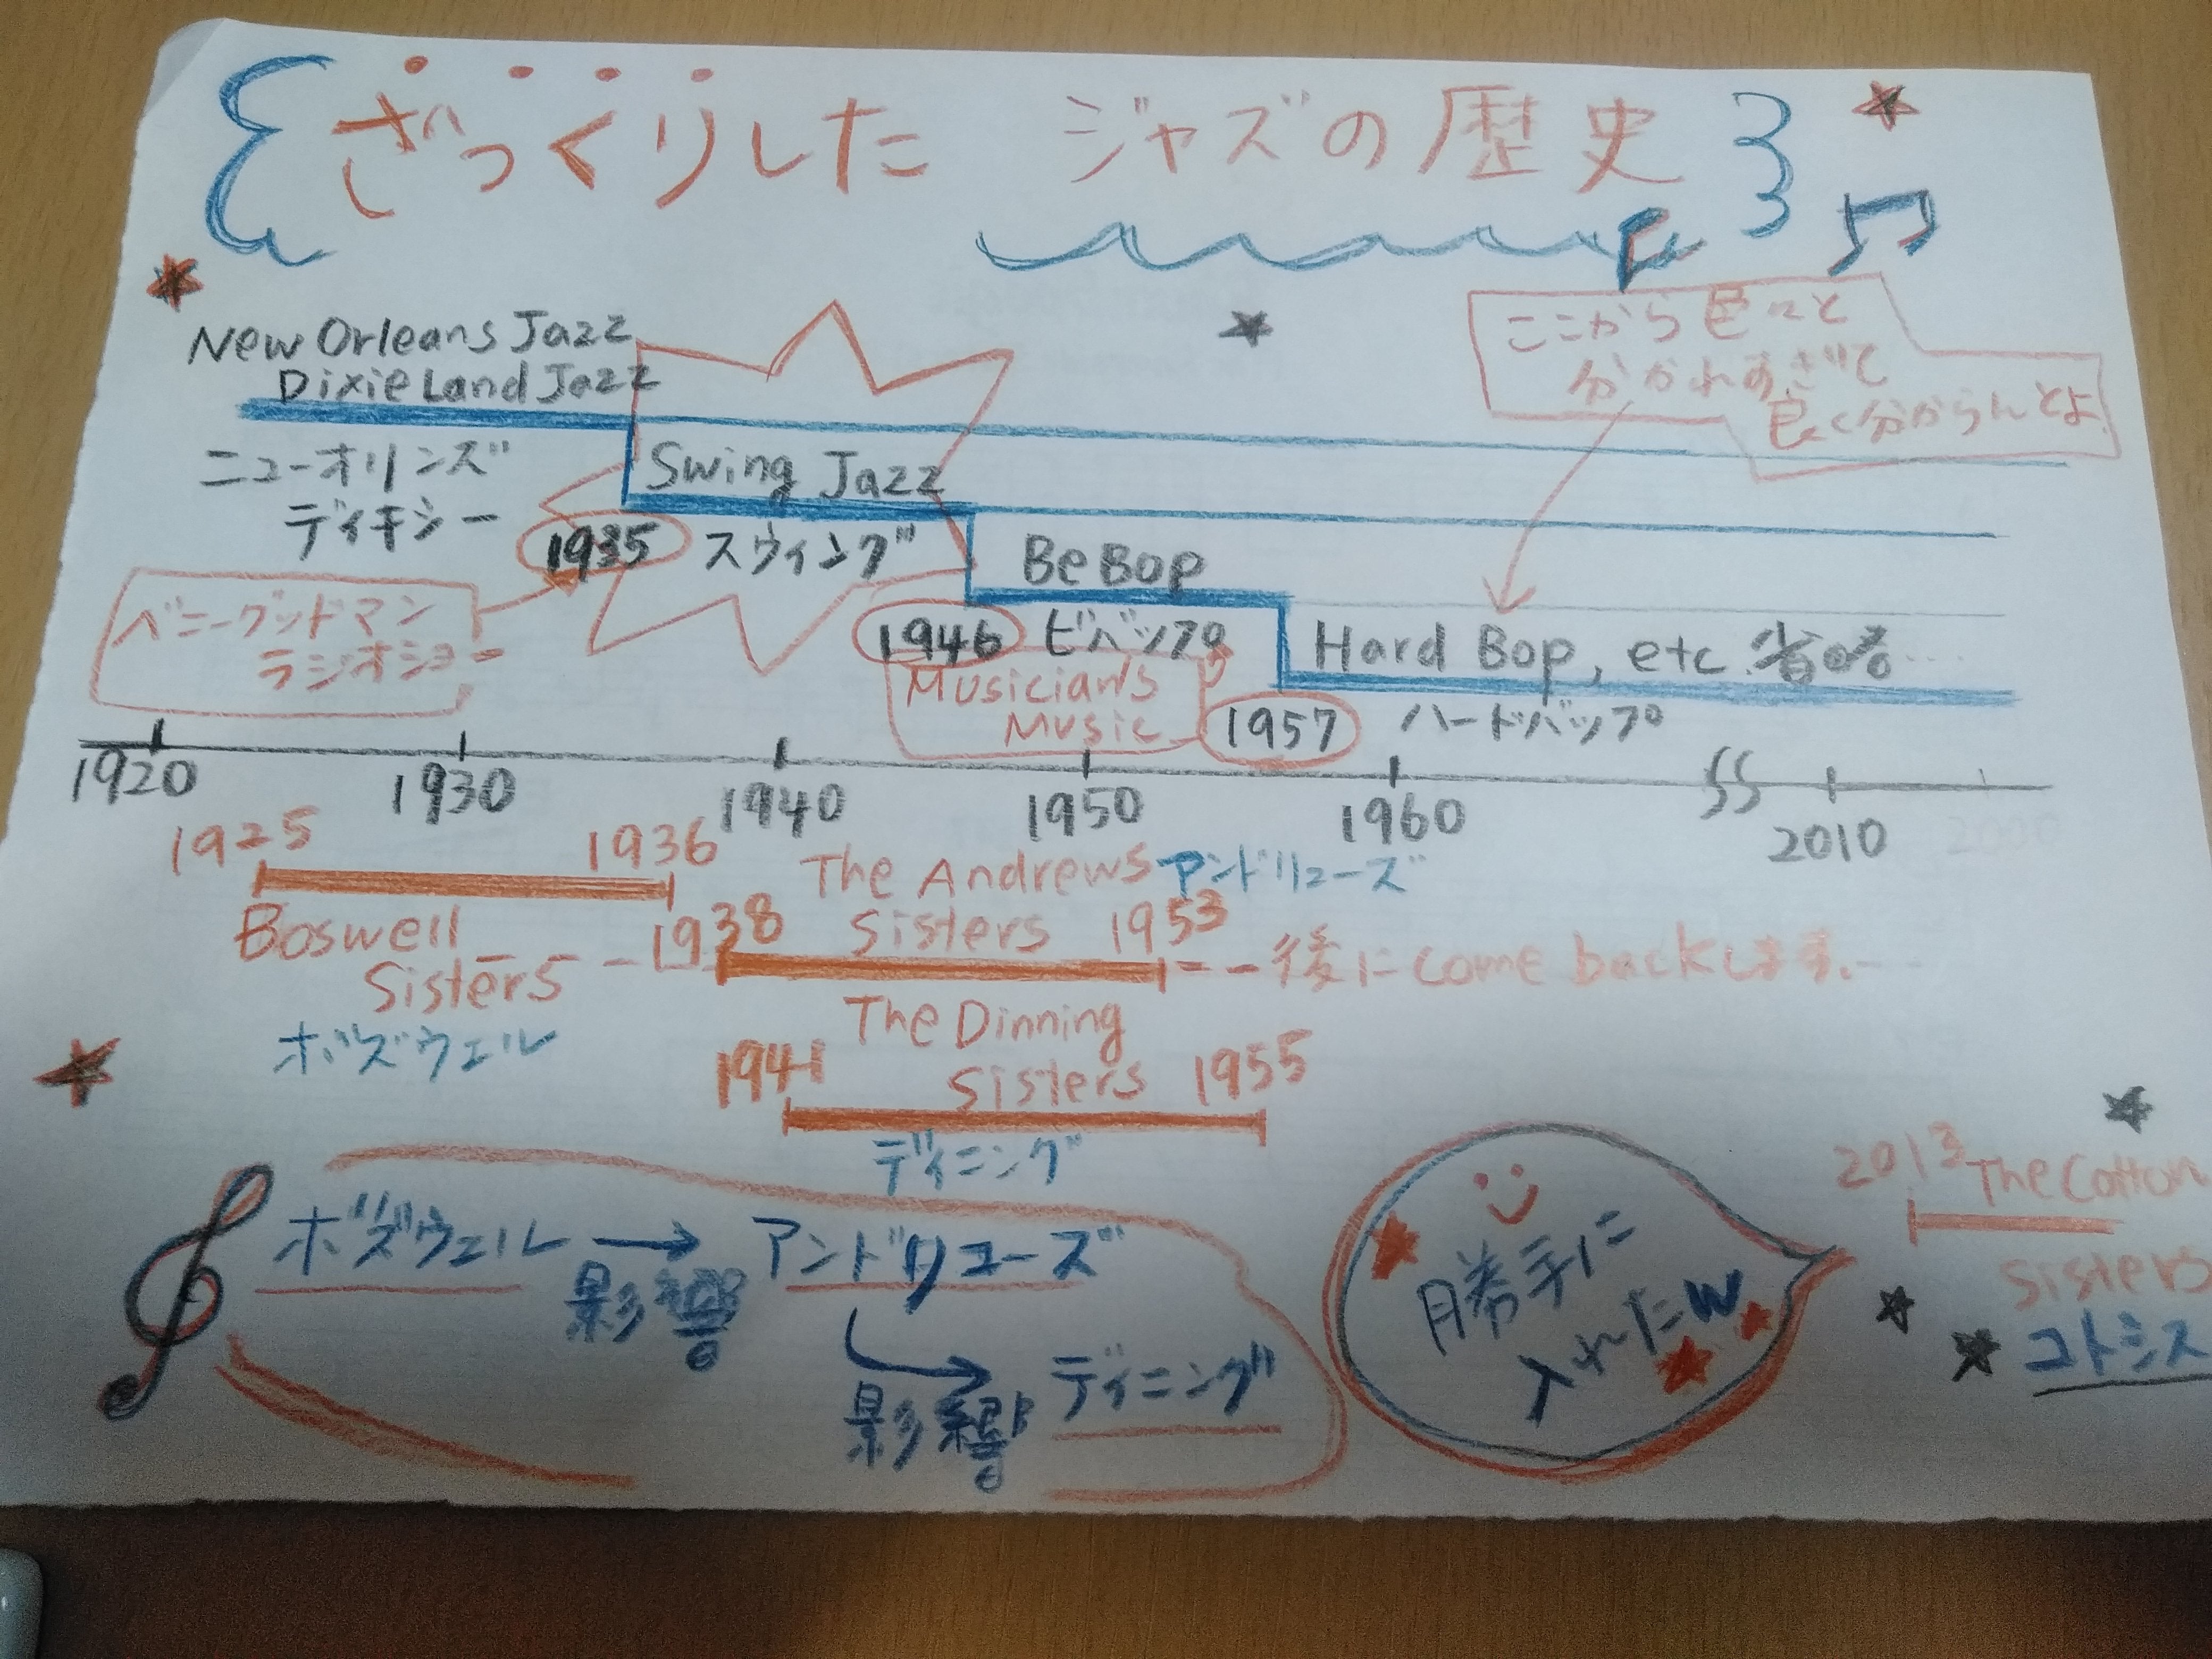 ざっくりした ジャズの歴史
New Orleans Jazz
Dixie Land Jazz
ニューオリンズ
ディキシー
ここから色々と
分かれすぎて
良く分からんとよ
Swing Jazz
1935 スウィング
ベニーグッドマン
ラジオショー
Be Bop
1946 ビバップ
Musician's
Music
Hard Bop, etc 省略……
1957 ハードバップ
1920 1930 1940 1950 1960 2010
1925 1936
Boswell
Sisters
ボズウェル
The Andrews アンドリューズ
Sisters
1938 1953
後に come backします。
The Dinning
Sisters
1941 1955
ディニング
ボズウェル → アンドリューズ
影響
影響
ディニング
勝手に
入れたw
2013 The Cotton
Sisters
コトシス